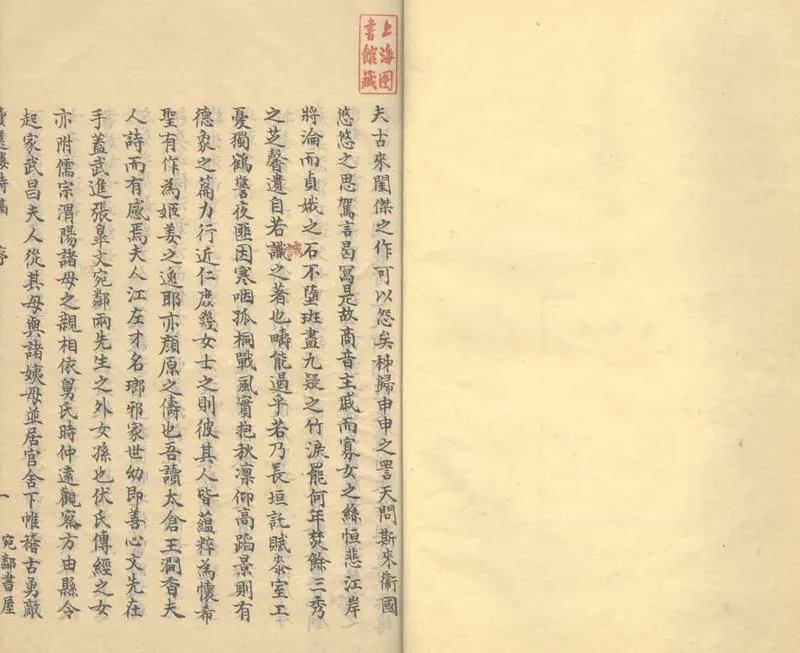 上海图書館藏
夫古來閨傑之作可以怨矣秭歸申申之詈天問斯來衛國
悠悠之思駕言曷寫是故商音主戚而寡女之絲恒悲江岸
將淪而貞娥之石不墮斑盡九疑之竹淚罷何年焚餘三秀
之芝馨遺自若讖之著也疇能過乎若乃長垣託賦漆室工
誠
憂獨鶴警夜匪因寒咽孤桐戰風實抱秋凛仰高蹈景則有
德象之篇力行近仁庶幾女士之則彼其人皆蘊粹為懷希
聖有作為姬姜之逸耶亦顏原之儔也吾讀太倉王澗香夫
人詩而有感焉夫人江左才名瑯邪家世幼即善心文先在
手蓋武進張皋文宛鄰兩先生之外女孫也伏氏傳經之女
亦附儒宗渭陽諸母之親相依舅氏時仲遠觀察方由縣令
起家武昌夫人從其母與諸姨母並居官舍下帷稽古勇敵
讀選樓詩稿 序 一 宛鄰書屋